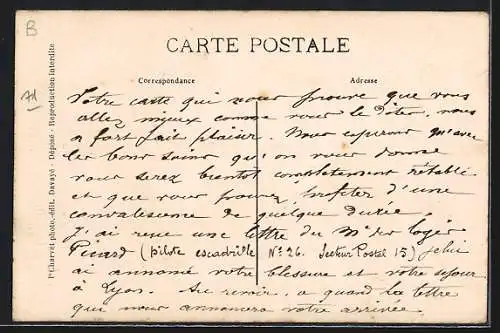 B
71
CARTE POSTALE
Correspondance
Adresse
Pre Charvet photo.-édit. Davayé - Déposé - Reproduction interdite
Votre carte qui nous prouve que vous
allez mieux comme vous le dites, nous
a fort fait plaisir. Nous espérons qu'avec
les bons soins qu'on vous donne
vous serez bientôt complètement rétabli
et que vous pouvez profiter d'une
convalescence de quelque durée.
J'ai reçu une lettre du Mis des Logès
Picard (pilote escadrille No 26. Secteur Postal 15) je lui
ai annoncé votre blessure et votre séjour
à Lyon. Au revoir, à quand la lettre
qui nous annoncera votre arrivée.